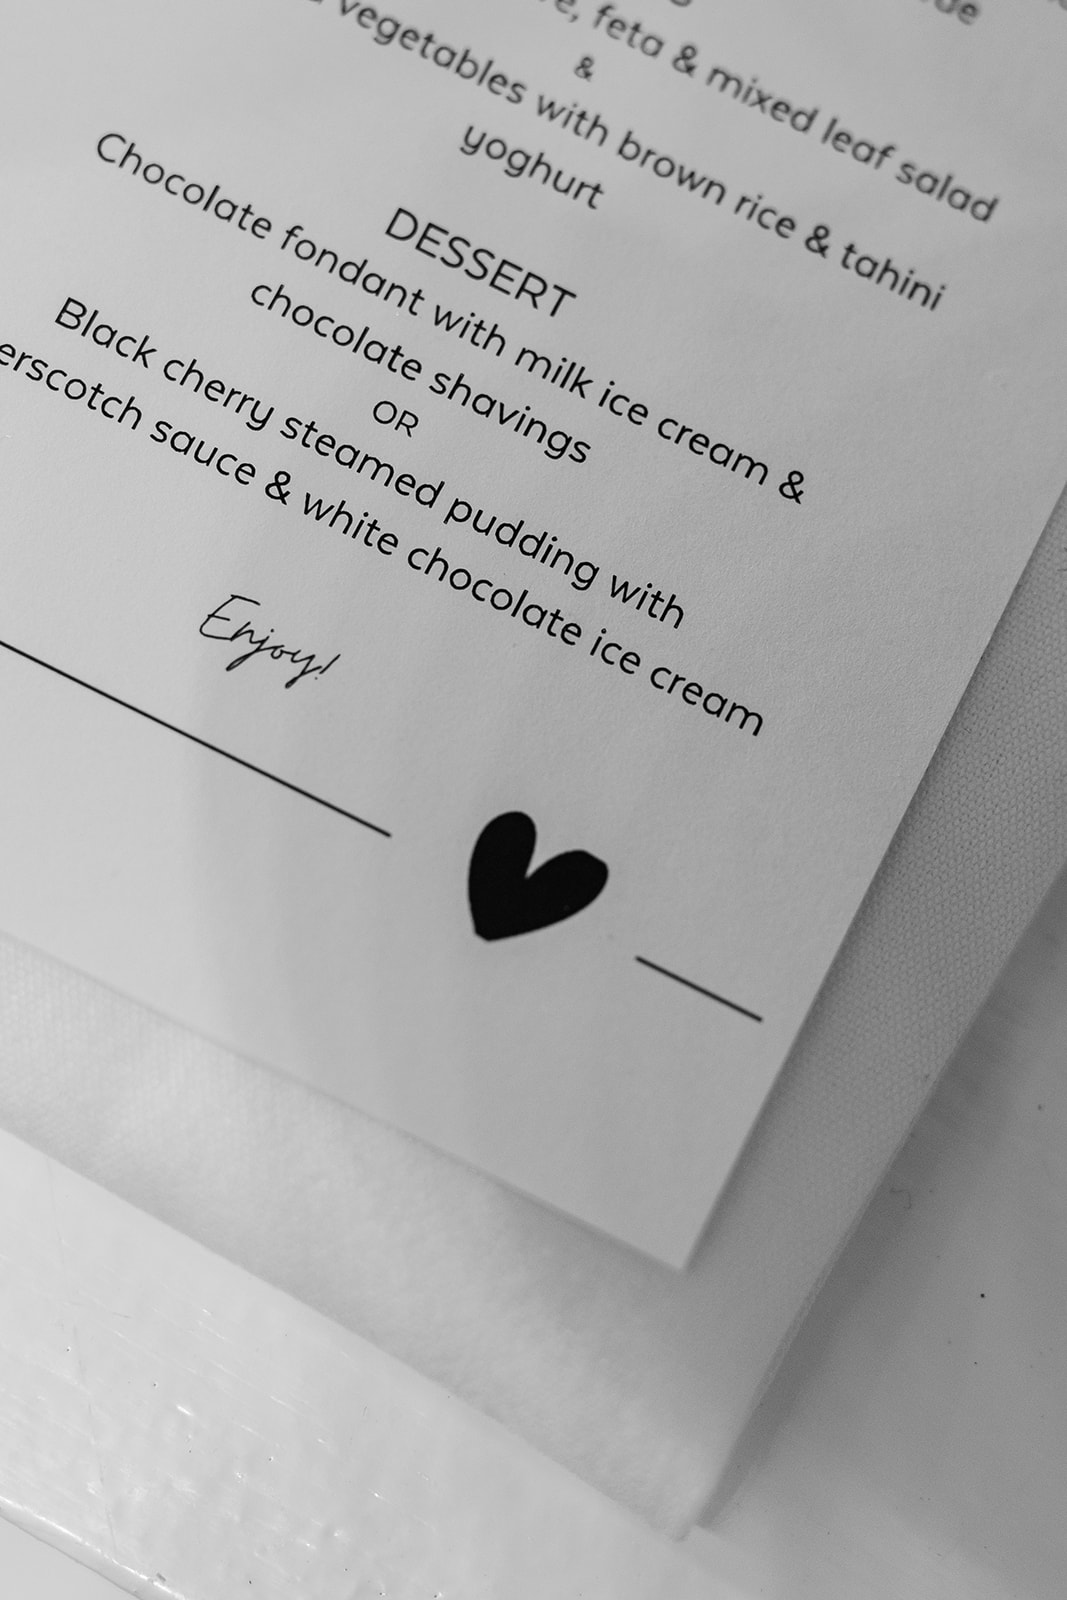 feta & mixed leaf salad
&
vegetables with brown rice & tahini
yoghurt
DESSERT
Chocolate fondant with milk ice cream &
chocolate shavings
OR
Black cherry steamed pudding with
erscotch sauce & white chocolate ice cream
Enjoy!